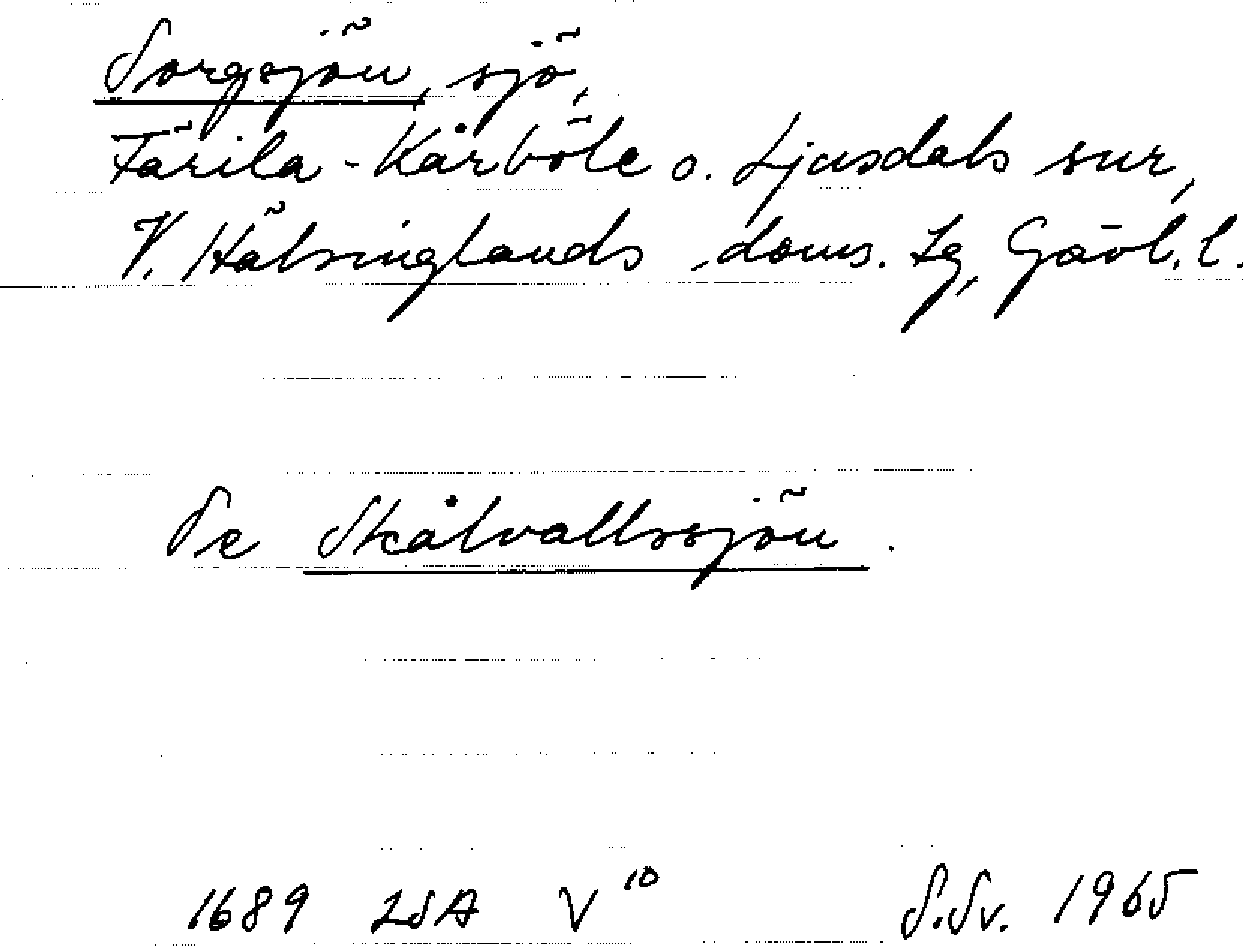 Sorgsjön, sjö,
Färila-Kårböle o. Ljusdals snr,
V. Hälsinglands doms. tg, Gävl. l.
Se Skålvallssjön.
1689 LSA V¹⁰ S.Sv. 1965